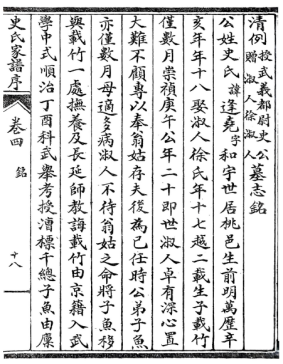 清例授武義都尉史公
贈淑人徐淑人墓志銘
公姓史氏諱逢堯字和宇世居桃邑生前明萬歷辛
亥年年十八娶淑人徐氏年十七越二載生子載竹
僅數月崇禎庚午公年二十即世淑人卓有深心置
大難不顧專以奉翁姑存夫後為已任時公弟子魚
亦僅數月母適多病淑人不待翁姑之命將子魚移
與載竹一處撫養及長延師教誨載竹由京籍入武
學中式順治丁酉科武舉考授漕標千總子魚由廩
史氏家譜序
卷四
銘
十八